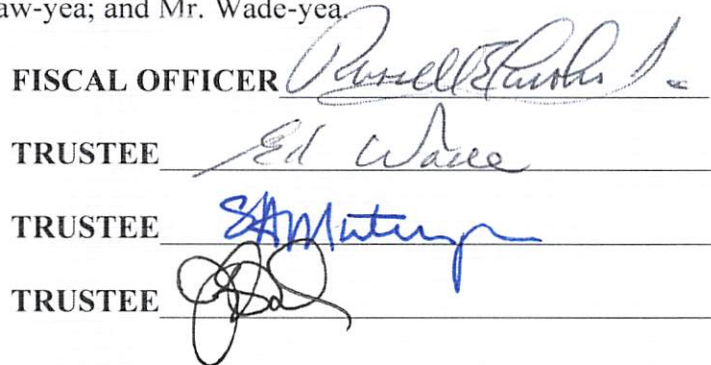 aw-yea; and Mr. Wade-yea.
FISCAL OFFICER Russell E
TRUSTEE Ed Wade
TRUSTEE
TRUSTEE